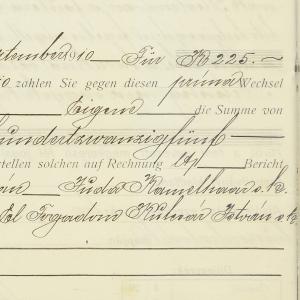 ptember 1910 Für K 225.–
10 zahlen Sie gegen diesen prima Wechsel
Eigene die Summe von
hundertzwanzigfünf
stellen solchen auf Rechnung Bericht
Juda Kamelhaar
Kulnár István